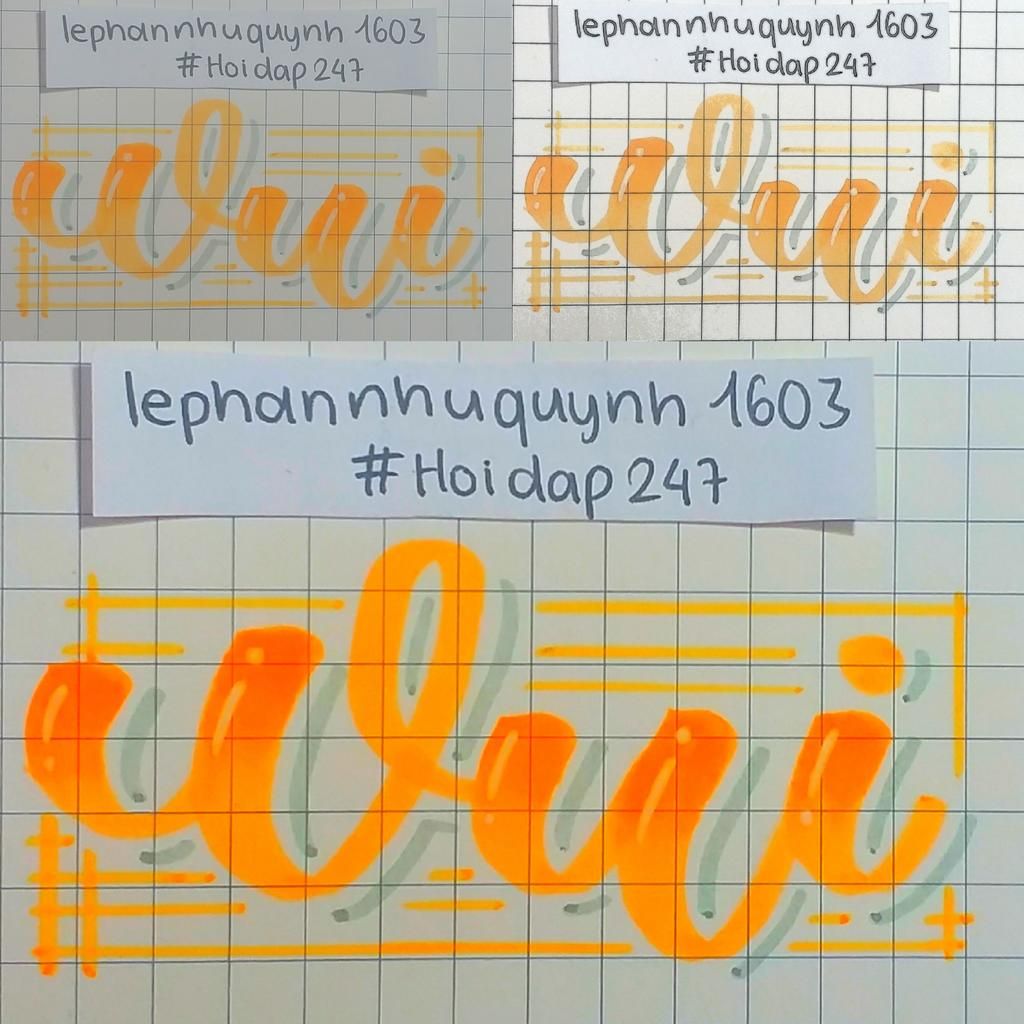 lephannhuquynh 1603
#Hoidap247
Vui
lephannhuquynh 1603
#Hoidap247
Vui
lephannhuquynh 1603
#Hoidap247
Vui